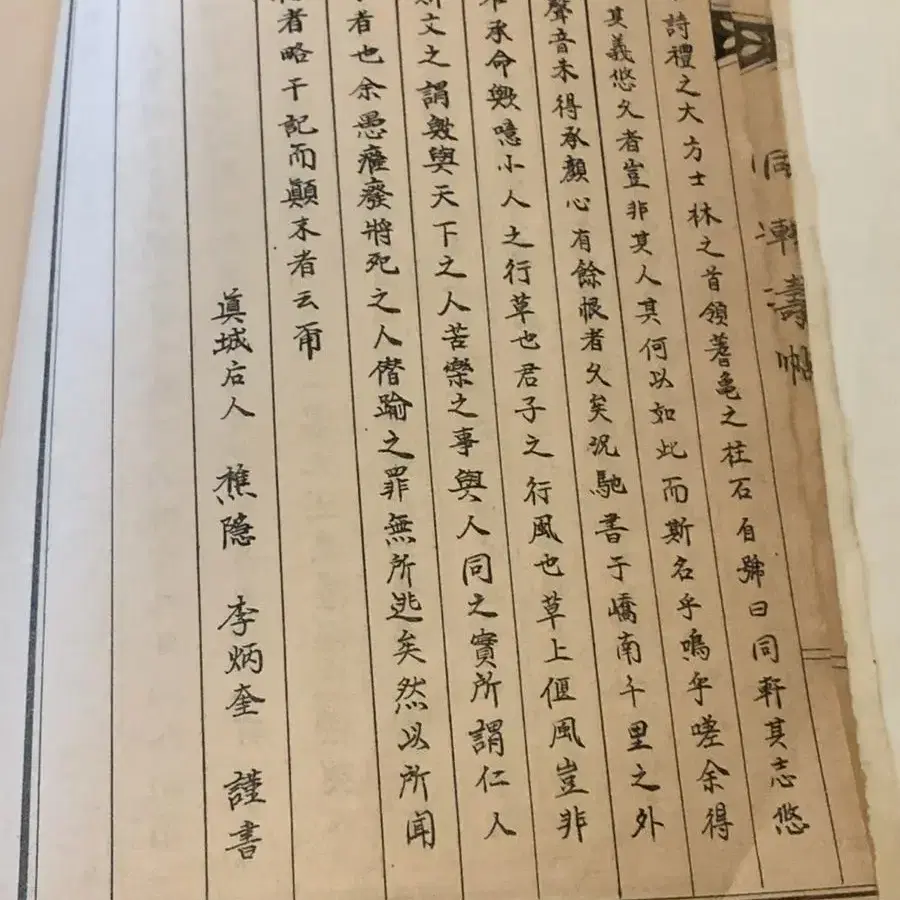 詩禮之大方士林之首領蓍亀之柱石自號曰同軒其志悠
其義悠久者豈非其人其何以如此而斯名乎嗚乎嗟余得
聲音未得承顏心有餘恨者久矣況馳書于嶠南千里之外
承命歟噫小人之行草也君子之行風也草上偃風豈非
斯文之謂歟與天下之人苦樂之事與人同之實所謂仁人
者也余愚癃廢將死之人僭踰之罪無所逃矣然以所聞
者略干記而顚末者云甭
眞城后人 樵隱 李炳奎 謹書